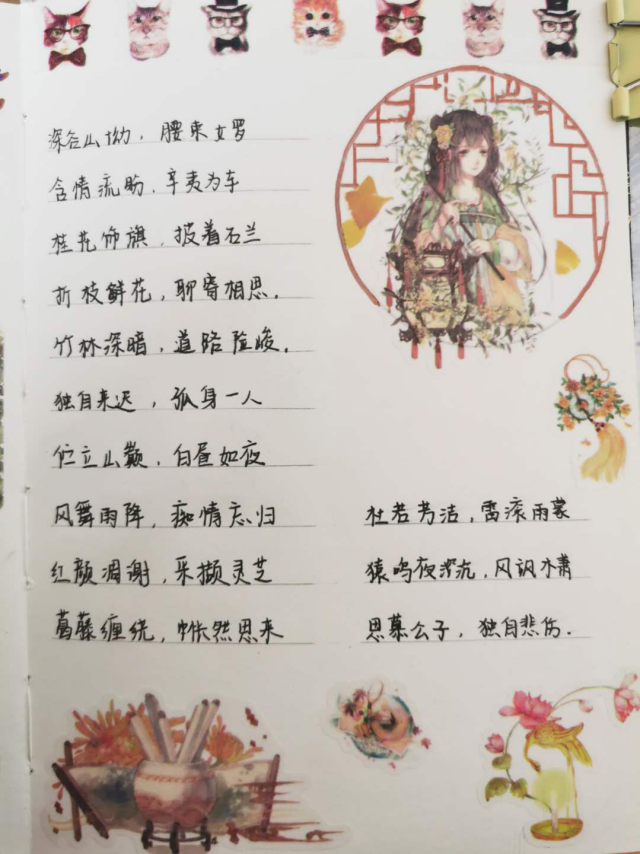 深谷山坳，腰束女罗
含情流盼，辛夷为车
桂花饰旗，披着石兰
折枝鲜花，聊寄相思。
竹林深暗，道路险峻。
独自来迟，孤身一人
伫立山巅，白昼如夜
风舞雨降，痴情忘归
红颜凋谢，采撷灵芝
葛藤缠绕，怅然思来
杜若芳洁，雷滚雨蒙
猿鸣夜深沉，风飒木萧
思慕公子，独自悲伤.